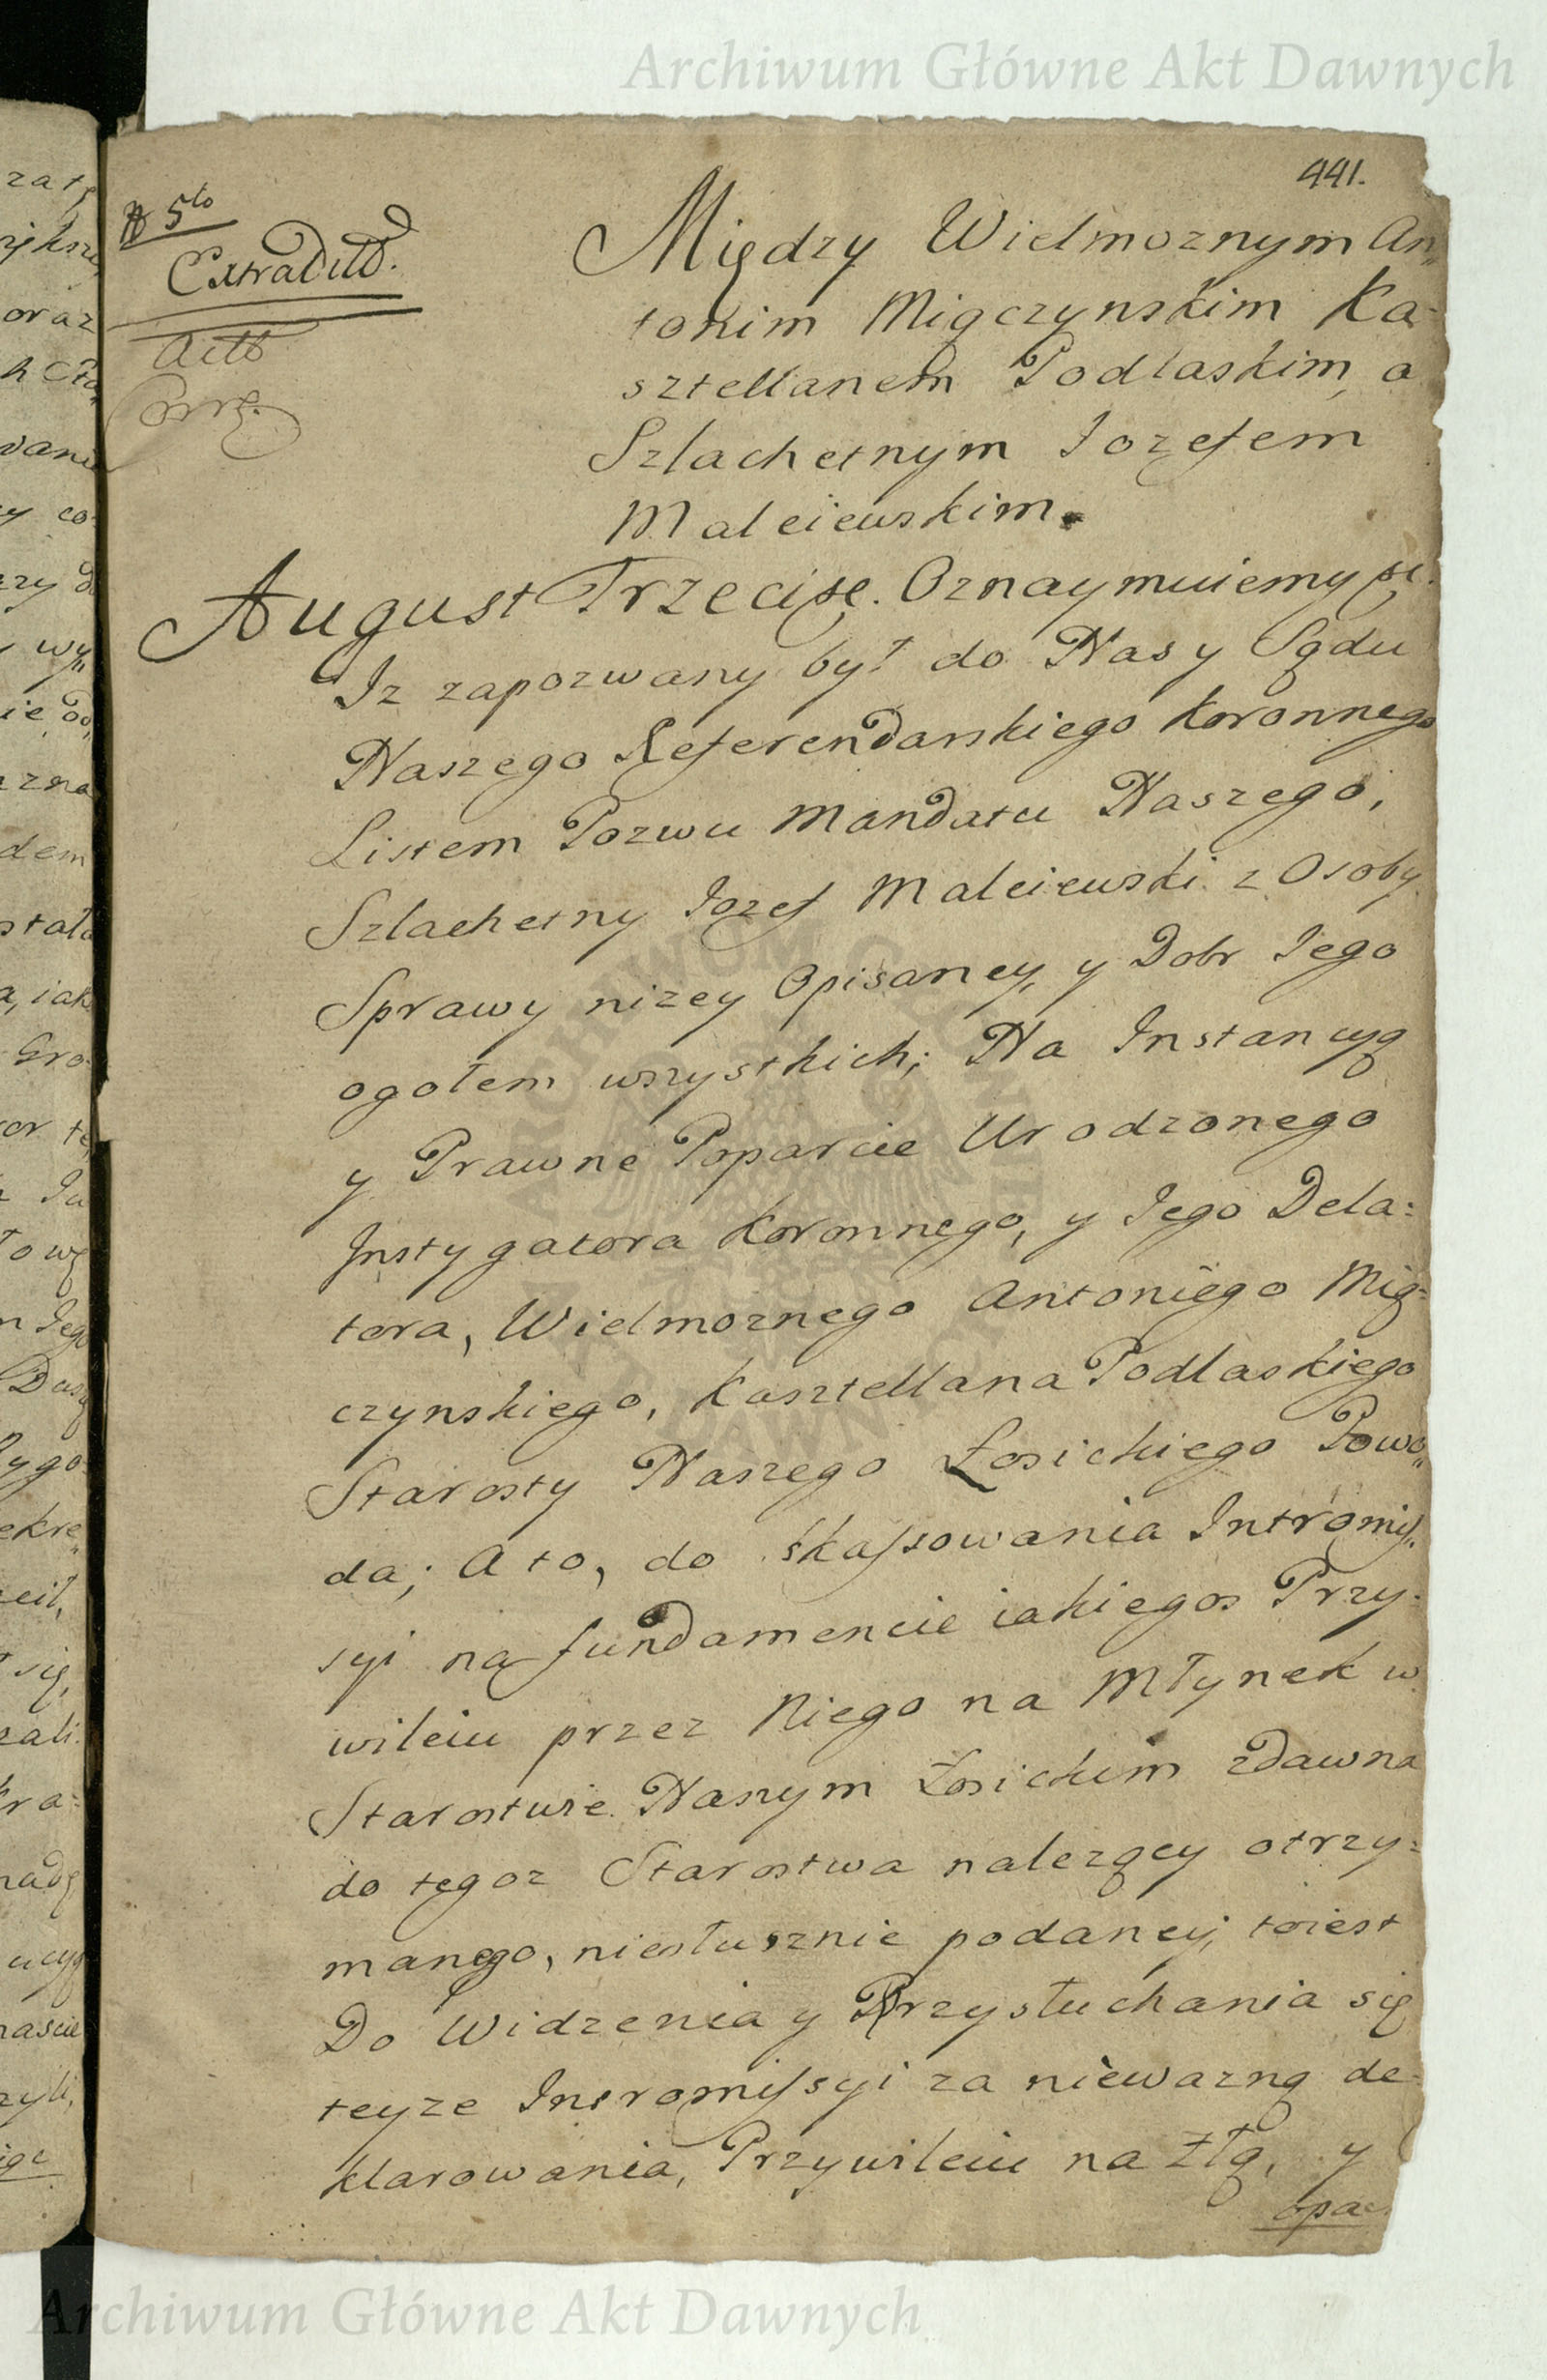 Archiwum Główne Akt Dawnych
441.
5to
Extradito.
Między Wielmoznym An„
tonim Miączynskim Ka-
sztellanem Podlaskim, a
Szlachetnym Iozefem
Maleiewskim.
August Trzeci pę. Oznaymuiemy pę.
Iz zapozwany był do Nas y Sądu
Naszego Referendarskiego Koronnego
Listem Pozwu Mandatu Naszego,
Szlachetny Iozef Maleiewski z Osoby
Sprawy nizey Opisaney, y Dobr Iego
ogołem wszystkich; Na Instancyą
y Prawne Poparcie Urodzonego
Instygatora Koronnego, y Iego Dela:
tora, Wielmoznego Antoniego Mią:
czynskiego, Kasztellana Podlaskiego
Starosty Naszego Łosickiego Powo„
da; A to, do skassowania Intromis„
syi na fundamencie iakiegos Przy:
wileiu przez Niego na Młynek w
Starostwie Naszym Łosickim zdawna
do tegoz Starostwa nalezący otrzy:
manego, niesłusznie podaney, toiest
Do Widzenia y Przysłuchania się
teyze Intromissyi za niewazną de-
klarowania, Przywileiu na złą, y
opa-
Archiwum Główne Akt Dawnych